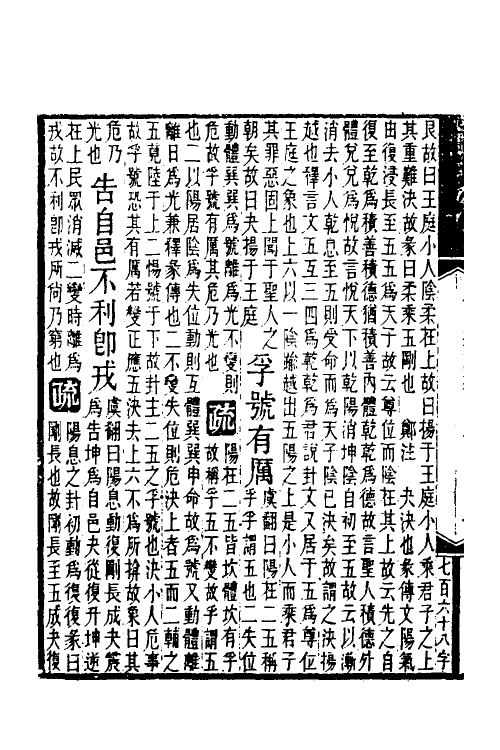 艮故曰王庭小人陰柔在上故曰揚于王庭小人乘君子之上
其重難決故彖曰柔乘五剛也　鄭注　夬決也彖傳文陽氣
由復浸長至五五爲天子故云尊位而陰在其上故云先之自
復至乾爲積善積德猶積善內體乾乾爲德故言聖人積德外
體兌兌爲悅故言悅天下以乾陽消坤陰自初至五故云以漸
消去小人乾息至五則受命而爲天子陰已決矣故謂之決揚
越也釋言文五互三四爲乾乾爲君說卦文又居于五爲尊位
王庭之象也上六以一陰踰越出五陽之上是小人而乘君子
其罪惡固上聞于聖人之
朝矣故曰夬揚于王庭
孚號有厲
虞翻曰陽在二五稱
孚孚謂五也二失位
動體巽巽爲號離爲光不變則
危故孚號有厲其危乃光也
疏
陽在二五皆坎體坎有孚
故稱孚五不變故孚謂五
也二以陽居陰爲失位動則互體巽巽申命故爲號又動體離
離日爲光兼釋彖傳也二不變失位則危決上者五而二輔之
五莧陸于上二惕號于下故卦主二五之孚號也決小人危事
故孚號恐其有厲若變正應五決去上六不爲所揜故象曰其
危乃
光也
告自邑不利卽戎
虞翻曰陽息動復剛長成夬震
爲告坤爲自邑夬從復升坤逆
在上民眾消滅二變時離爲
戎故不利卽戎所尚乃窮也
疏
陽息之卦初動爲復復彖曰
剛長也故剛長至五成夬復
七百六十八字